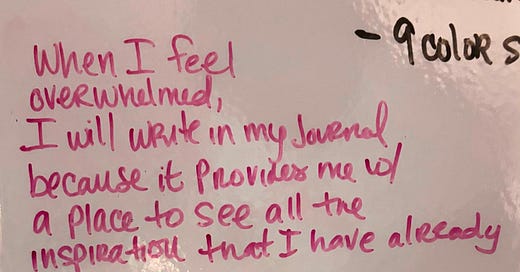 - 9 color s
When I feel
overwhelmed,
I will write in my Journal
because it Provides me w/
a Place to see all the
inspiration that I have already